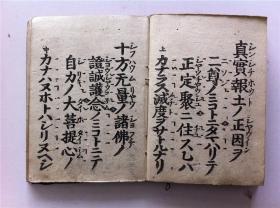 真實報土ノ正因ヲ
二尊ノミコトニタマハリテ
正定聚ニ住スレハ
カナラス滅度ヲサトルナリ
上
十方无量ノ諸佛ノ
證誠護念ノミコトニテ
自力ノ大菩提心ノ
カナハヌホトハシリヌヘシ
中